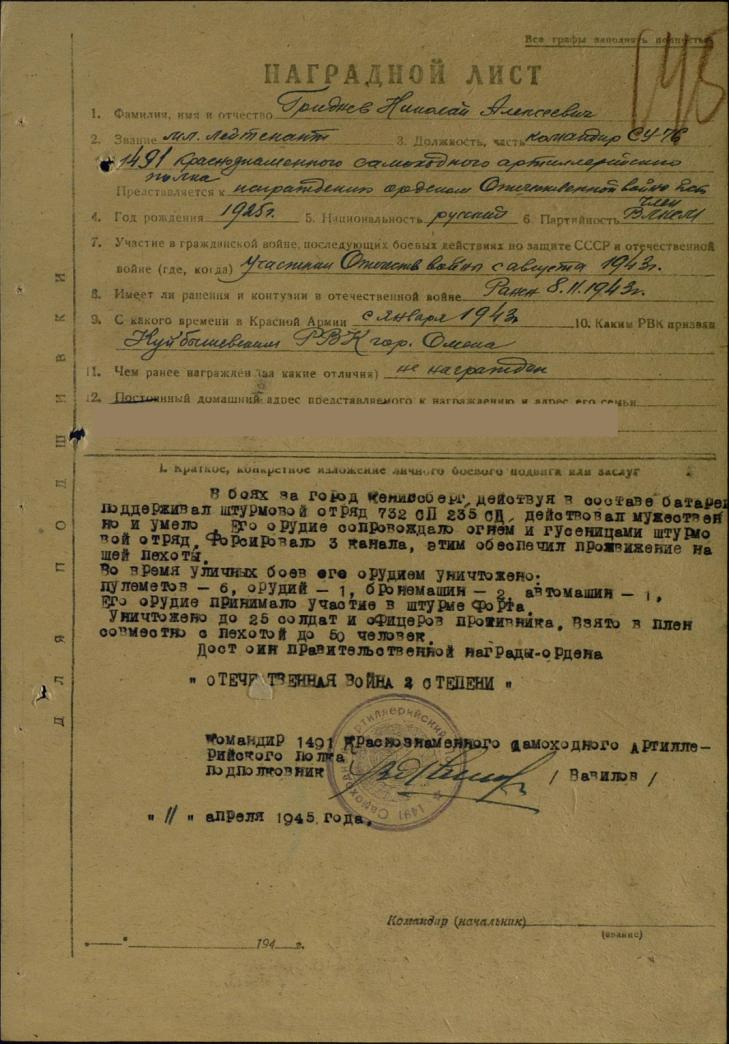 Все графы заполнять полностью
НАГРАДНОЙ ЛИСТ
1. Фамилия, имя и отчество Гриднев Николай Алексеевич
2. Звание мл. лейтенант 3. Должность, часть командир СУ-76
1491 Краснознаменного самоходного артиллерийского
полка
Представляется к награждению орденом Отечественной войны IIст
4. Год рождения 1925г. 5. Национальность русский 6. Партийность член ВЛКСМ
7. Участие в гражданской войне, последующих боевых действиях по защите СССР и отечественной
войне (где, когда) участник Отечеств войны с августа 1943г.
8. Имеет ли ранения и контузии в отечественной войне Ранен 8.11.1943г.
9. С какого времени в Красной Армии с января 1943г 10. Каким РВК призван
Куйбышевским РВК гор. Омска
11. Чем ранее награжден (за какие отличия) не награжден
12. Постоянный домашний адрес представляемого к награждению и адрес его семьи
I. Краткое, конкретное изложение личного боевого подвига или заслуг
В боях за город Кенигсберг, действуя в составе батареи
поддерживал штурмовой отряд 732 СП 235 СД, действовал мужествен
но и умело. Его орудие сопровождало огнем и гусеницами штурмо
вой отряд. Форсировало 3 канала, этим обеспечил продвижение на
шей пехоты.
Во время уличных боев его орудием уничтожено:
пулеметов - 6, орудий - 1, бронемашин - 2, автомашин - 1.
Его орудие принимало участие в штурме Форта.
Уничтожено до 25 солдат и офицеров противника. Взято в плен
совместно с пехотой до 50 человек.
Достоин правительственной награды-ордена
" ОТЕЧЕСТВЕННАЯ ВОЙНА 2 СТЕПЕНИ "
Командир 1491 Краснознаменного Самоходного Артилле-
рийского Полка
Подполковник / Вавилов /
" 11 " апреля 1945 года.
Командир (начальник)
(звание)
" " 194 г.
ДЛЯ ПОДШИВКИ